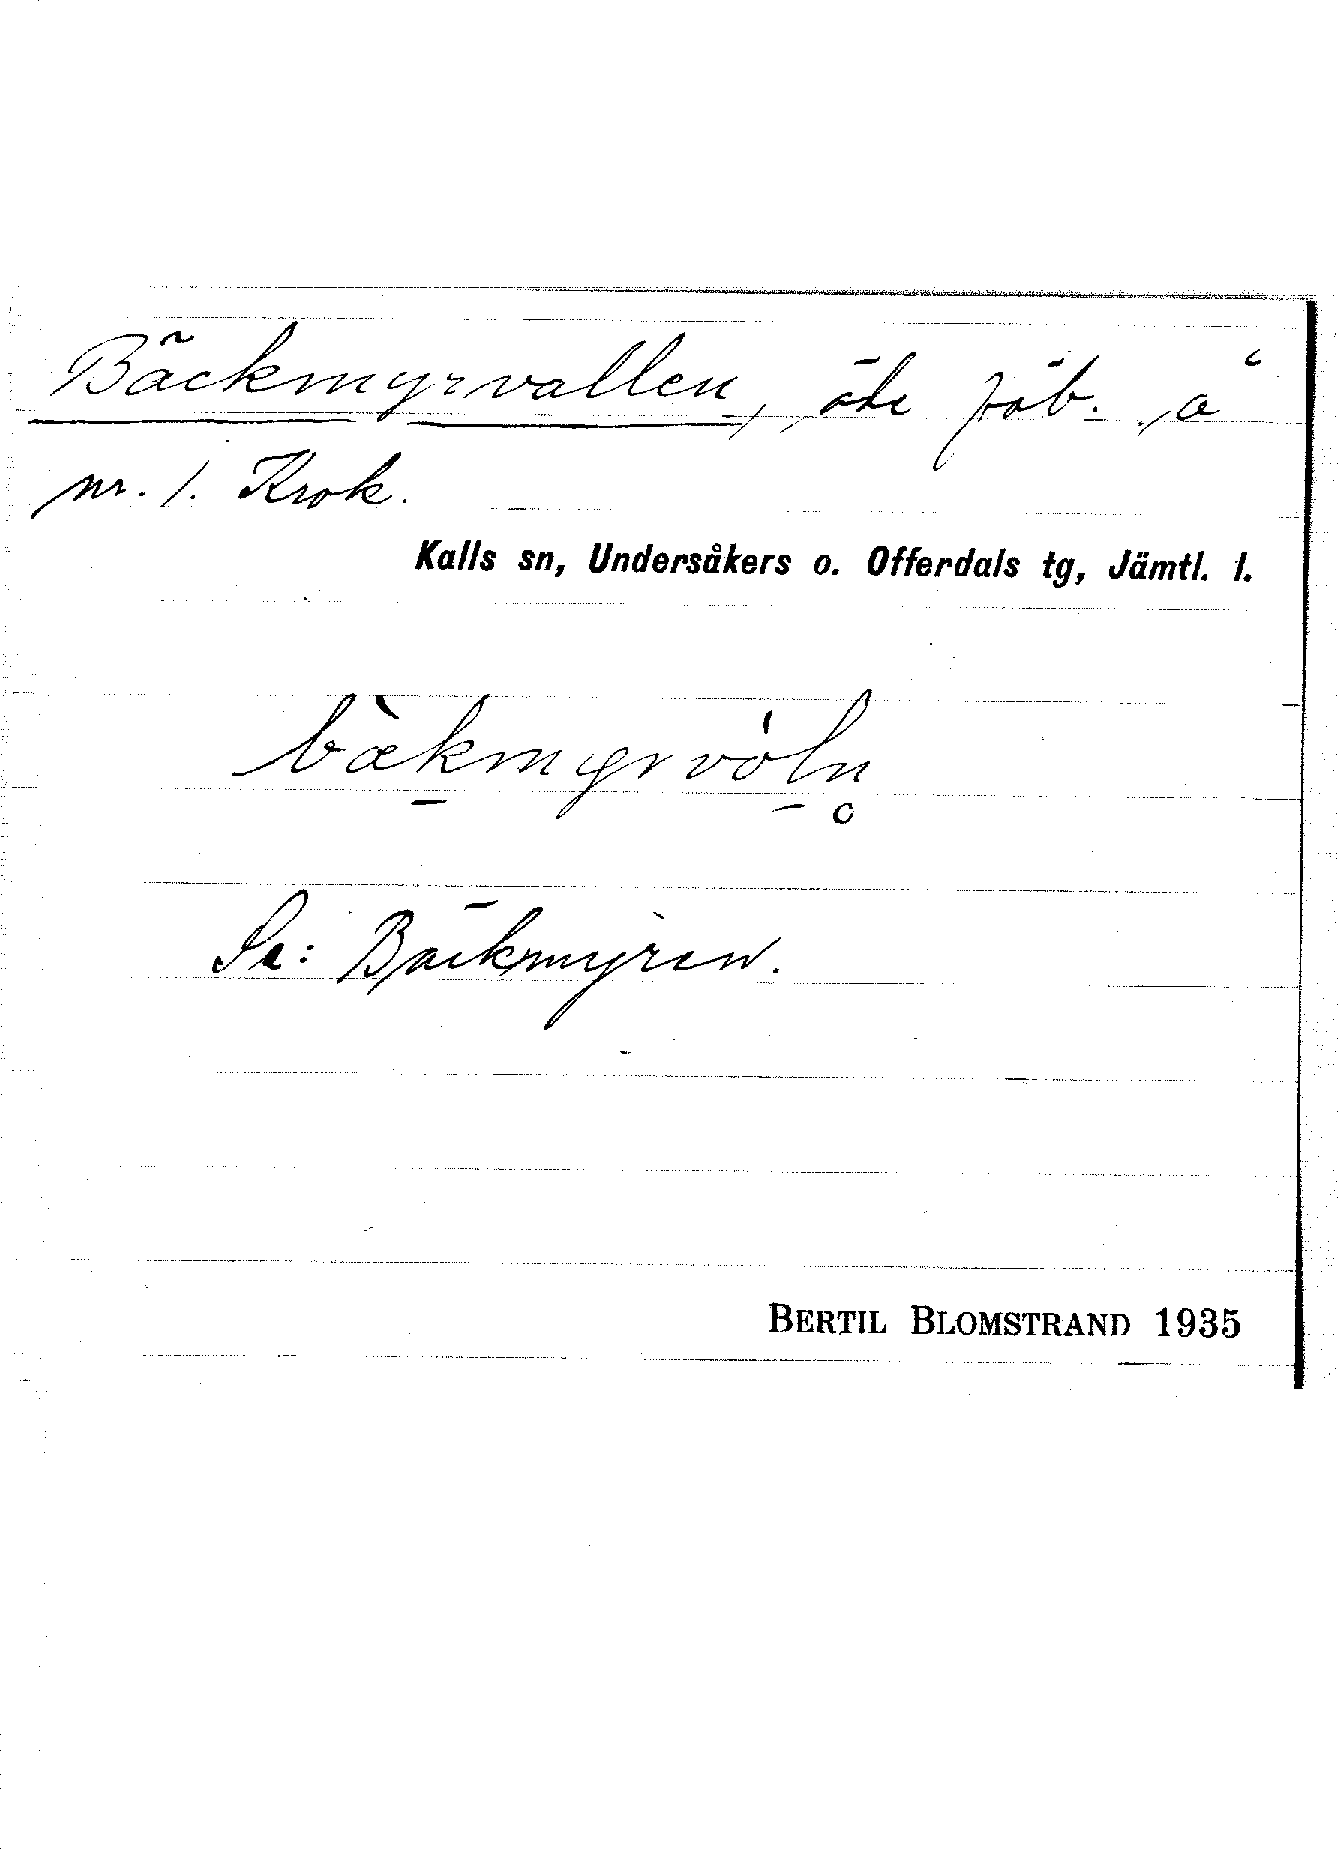 Bäckmyrvallen, öde fäb. å
nr. 1. Krok.
Kalls sn, Undersåkers o. Offerdals tg, Jämtl. l.
bæ̀kmyrvò̀ln̥
Se: Bäckmyren.
BERTIL BLOMSTRAND 1935